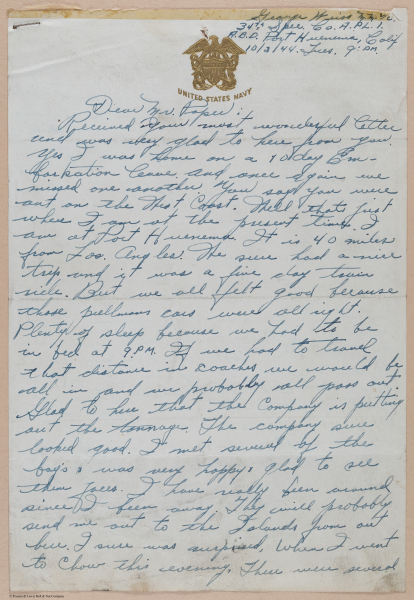 George Weiss
34th Spec. Co. A. PL. 1.
A.B.D. Port Hueneme, Calif
10/3/44. Tues. 9: PM
UNITED STATES NAVY
Dear Mr. Roper:
Received your most wonderful letter
and was very glad to here from you.
Yes I was home on a 10 day Em-
barkation leave and once again we
missed one another. You say you were
out on the West Coast. Well that's just
where I am at the present time. I
am at Port Hueneme. It is 40 miles
from Los. Angles. We sure had a nice
trip and it was a five day train
ride. But we all felt good because
those pullmans cars were all right.
Plenty of sleep because we had to be
in bed at 9 P.M. If we had to travel
that distance in coaches we would be
all in and we probably all pass out.
Glad to here that the Company is putting
out the tonnage. The company sure
looked good. I met several of the
boys & was very happy & glad to see
them faces. I have really been around
since I been away. They will probably
send me out to the Islands from out
here. I sure was surprised, When I went
to Chow this evening. There were several